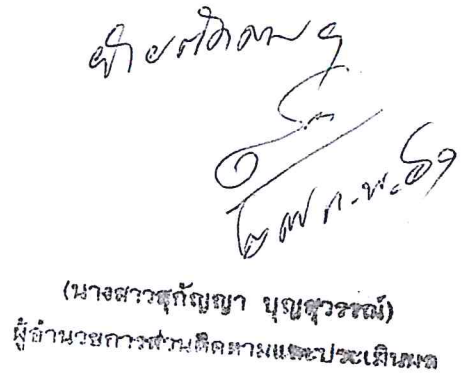 ฝ่ายติดตามฯ
๒๗ ก.พ. ๖๑
(นางสาวสุกัญญา บุญสุวรรณ์)
ผู้อำนวยการส่วนติดตามและประเมินผล